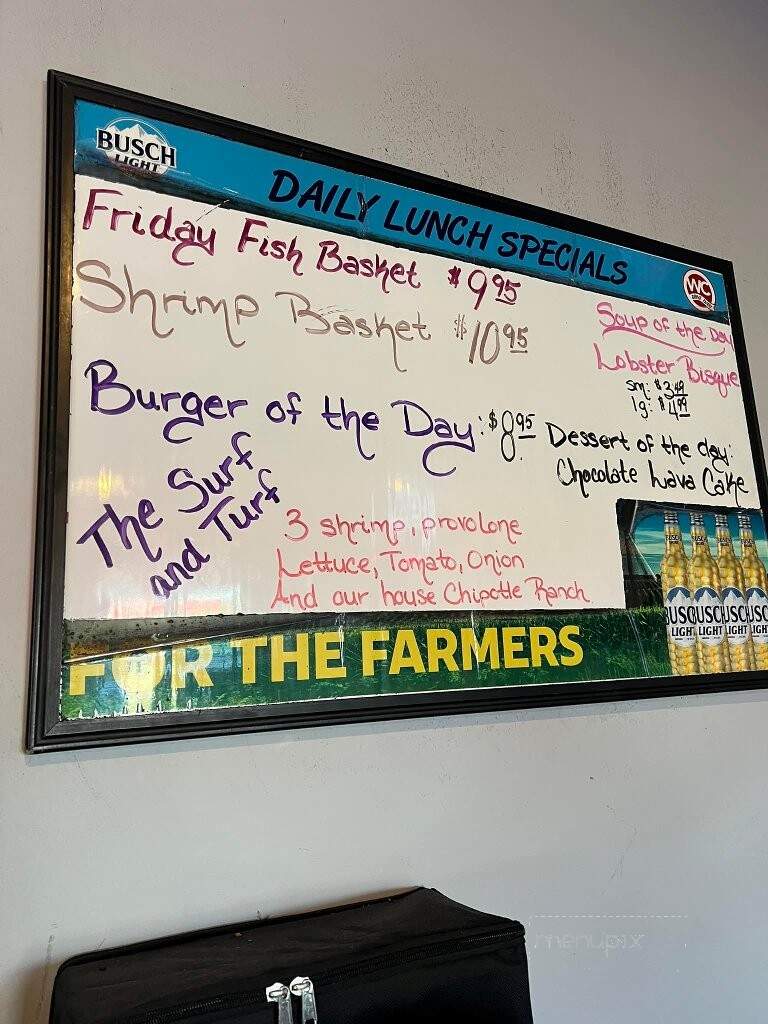 BUSCH
LIGHT
DAILY LUNCH SPECIALS
WC
Friday Fish Basket $9.95
Shrimp Basket $10.95
Soup of the Day
Lobster Bisque
sm: $3.49
lg: $4.99
Burger of the Day: $8.95
Dessert of the day:
Chocolate Lava Cake
The Surf
and Turf
3 shrimp, provolone
Lettuce, Tomato, Onion
And our house Chipotle Ranch
BUSCH BUSCH BUSCH BUSCH
LIGHT LIGHT LIGHT LIGHT
FOR THE FARMERS
menupix